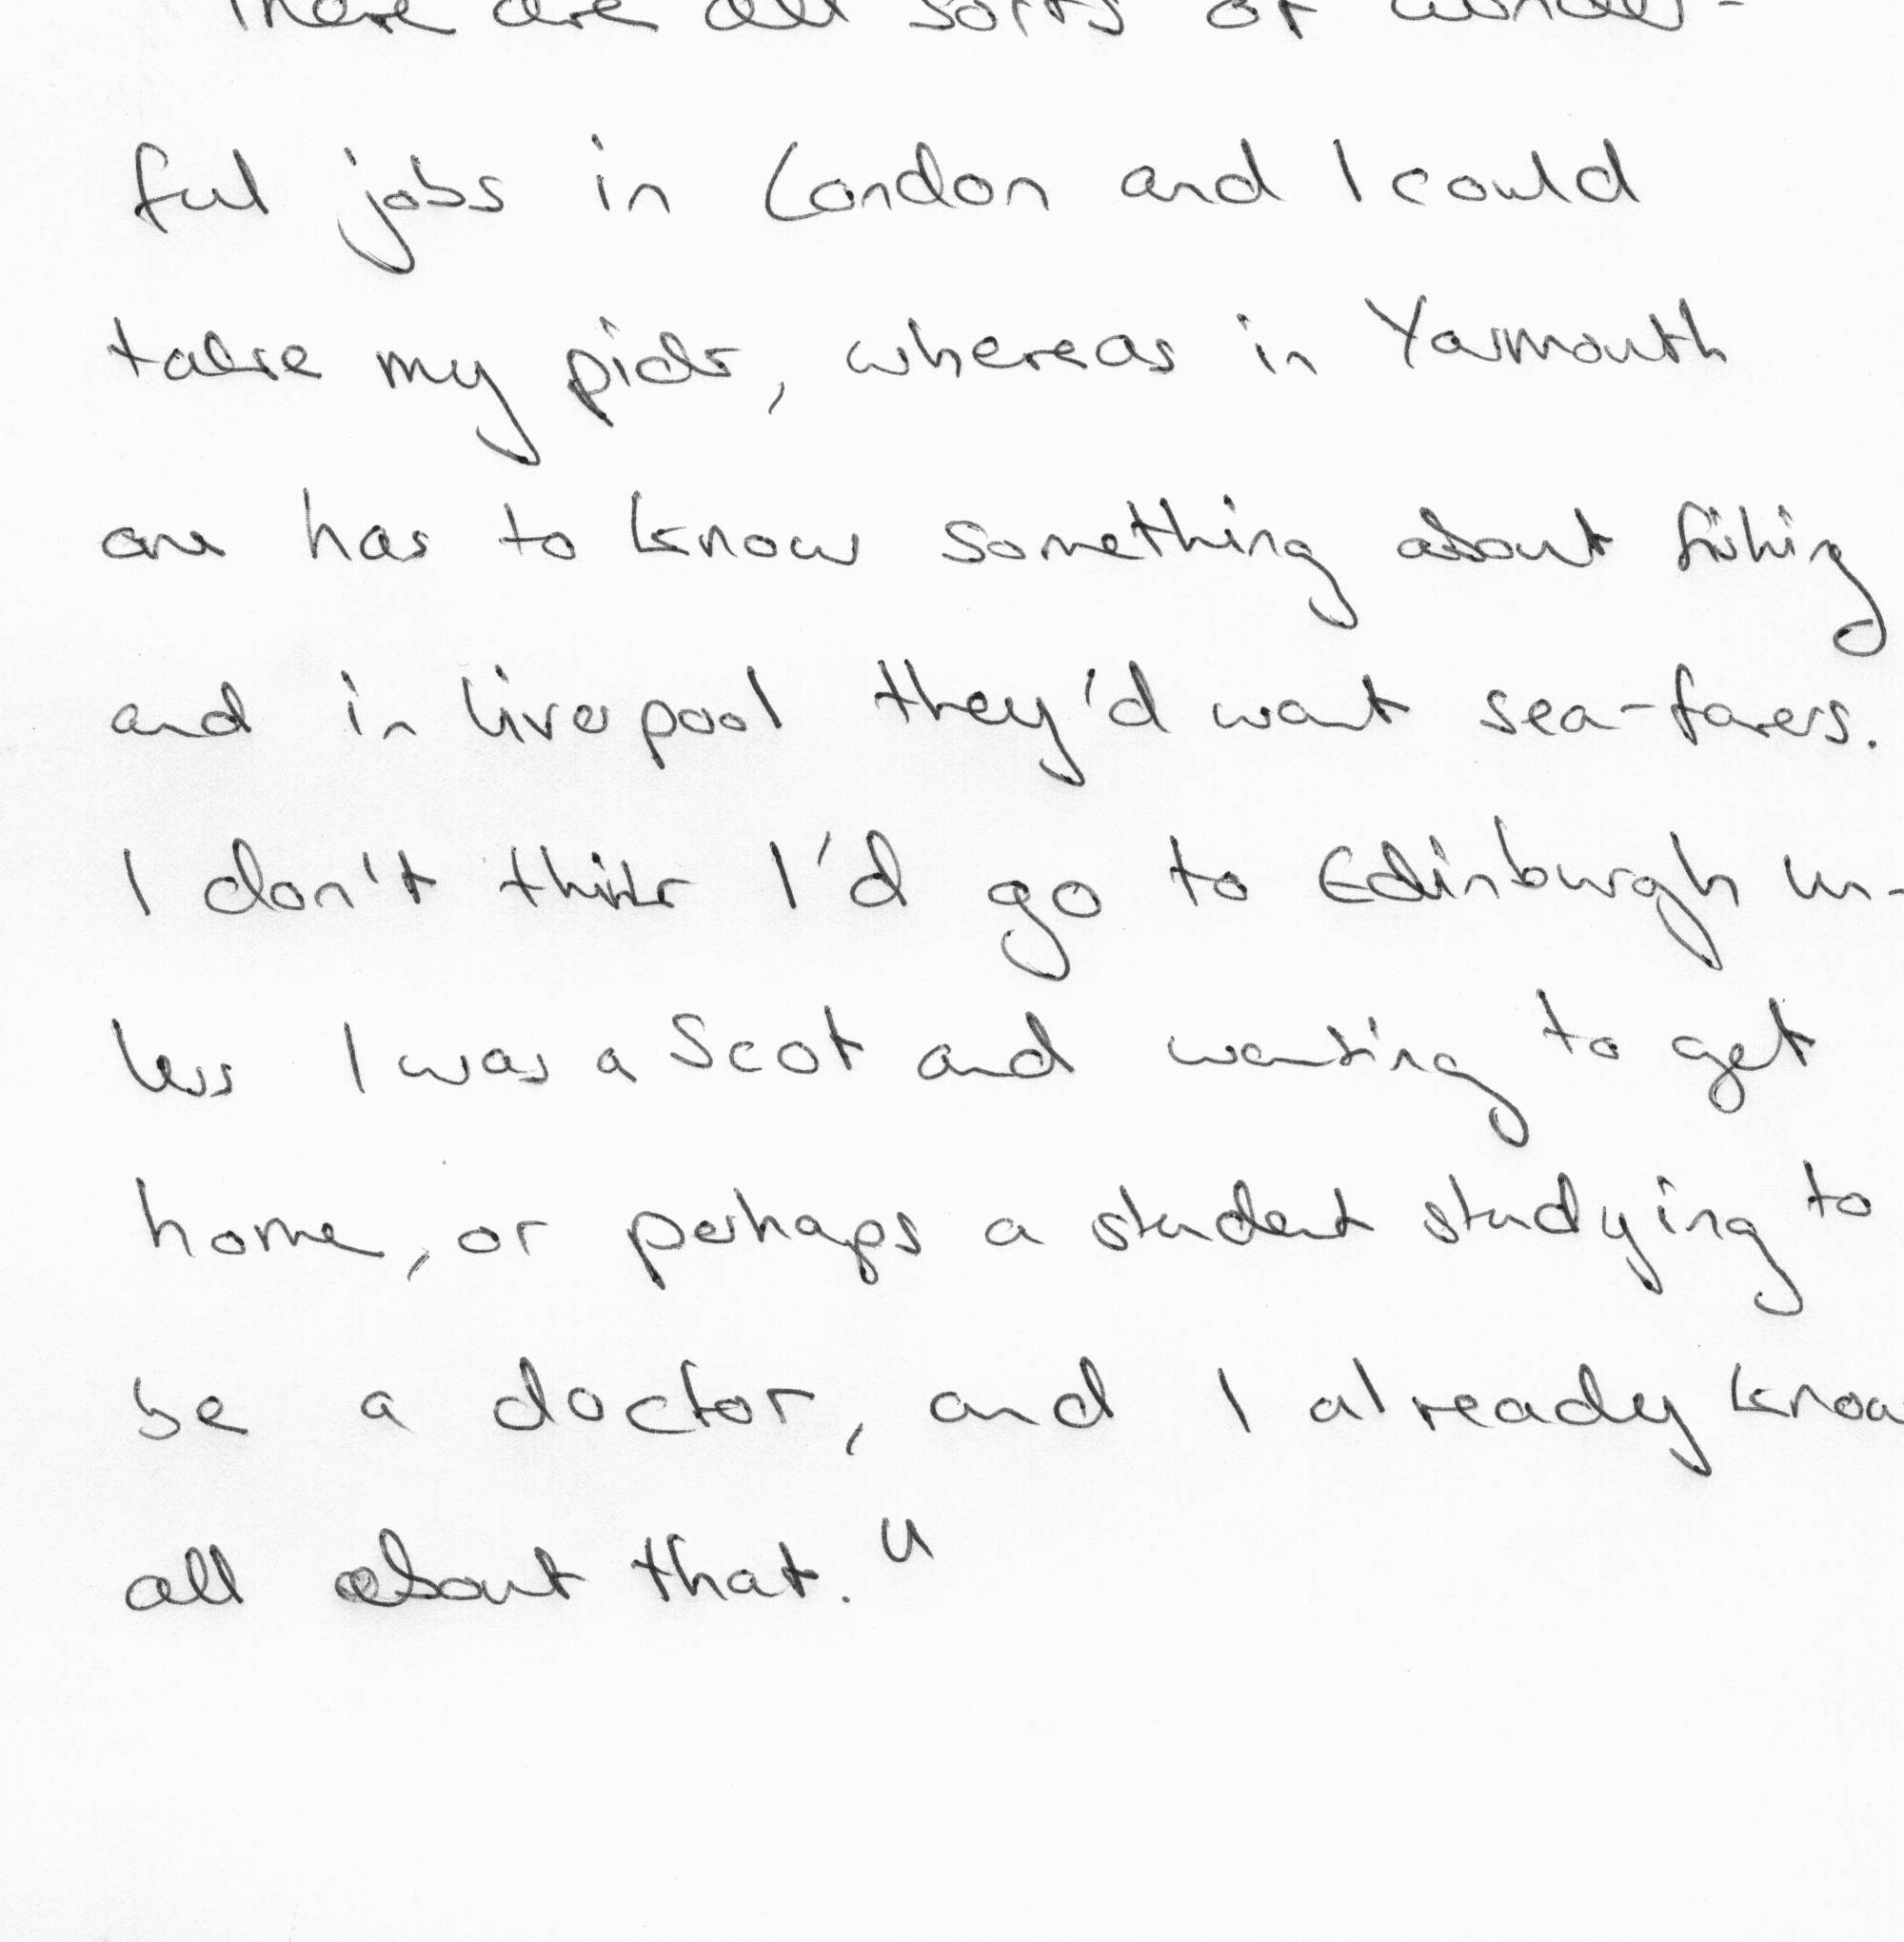 There are all sorts of wonder-
ful jobs in London and I could
take my pick, whereas in Yarmouth
one has to know something about fishing
and in Liverpool they'd want sea-farers.
I don't think I'd go to Edinburgh un-
less I was a Scot and wanting to get
home, or perhaps a student studying to
be a doctor, and I already know
all about that."